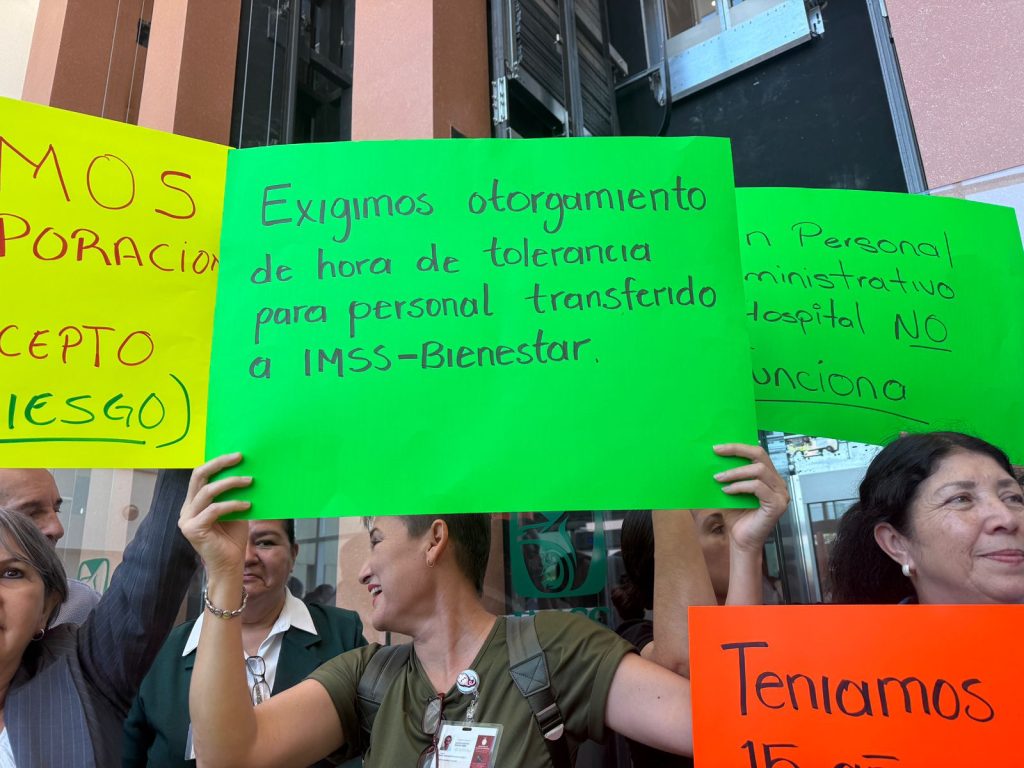 MOS
PORACION
CEPTO
IESGO)
Exigimos otorgamiento
de hora de tolerancia
para personal transferido
a IMSS-Bienestar.
n Personal
ministrativo
Hospital NO
unciona
Teníamos
15 añ